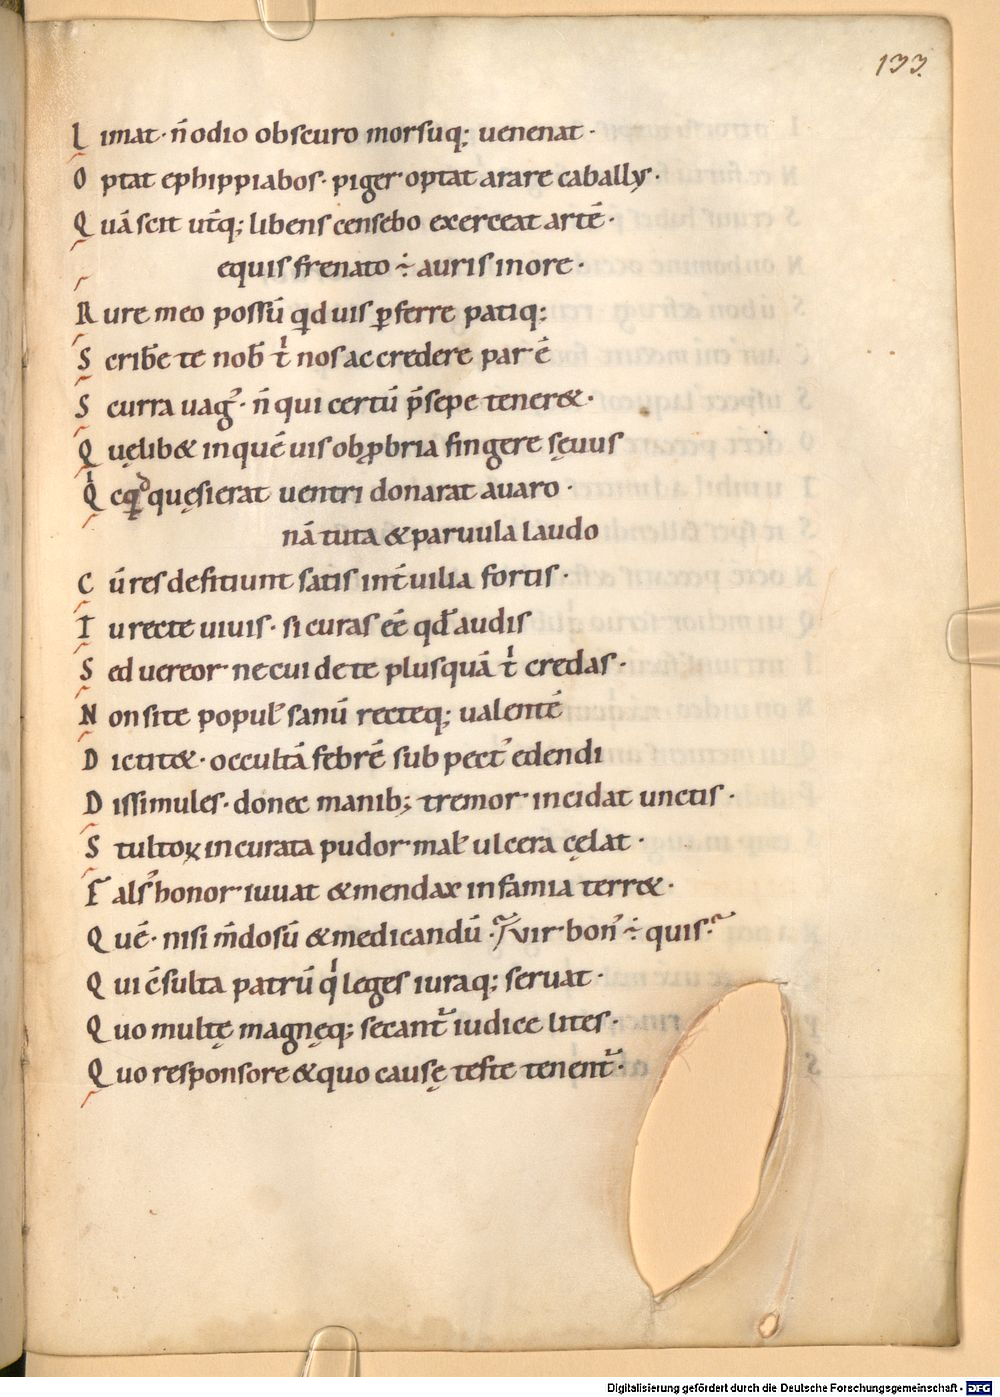 133.
L imat· n̄ odio obscuro morsuq; uenenat·
O ptat ephippia bos· piger optat arare caballꝰ·
Q uā scit ut̄q; libens censebo exerceat artē·
equis frenato ÷ auris in ore·
R ure meo possū qd uis ꝑferre patiq;
S cribe te nob̄ t̍ nos ac credere par ē
S curra uagꝰ· n̄ qui certū p̄sepe tener&·
Q uęlib& in quē uis obꝓbria fingere sęuus
Q̍ cqd quęsierat uentri donarat auaro·
nā tuta & paruula laudo
C ū res defitiunt satis int̄ uilia fortis·
T u recte uiuis· si curas eē qd̄ audis
S ed uereor ne cui de te plus quā t̍ credas·
N on si te popul̄ sanū recteq; ualentē
D ictit&· occultā febrē sub pect̓ edendi
D issimules· donec manib; tremor incidat unctis·
S tultoꝝ incurata pudor mal̄ ulcera cęlat·
F alsꝰ honor iuuat & mendax infamia terr&·
Q uē· nisi m̄dosū & medicandū· vir bonꝰ ÷ quis·
Q ui c̄sulta patrū q̍ leges iuraq; seruat·
Q uo multę magnęq; secant᷑ iudice lites·
Q uo responsore & quo causę teste tenent᷑·
Digitalisierung gefördert durch die Deutsche Forschungsgemeinschaft - DFG